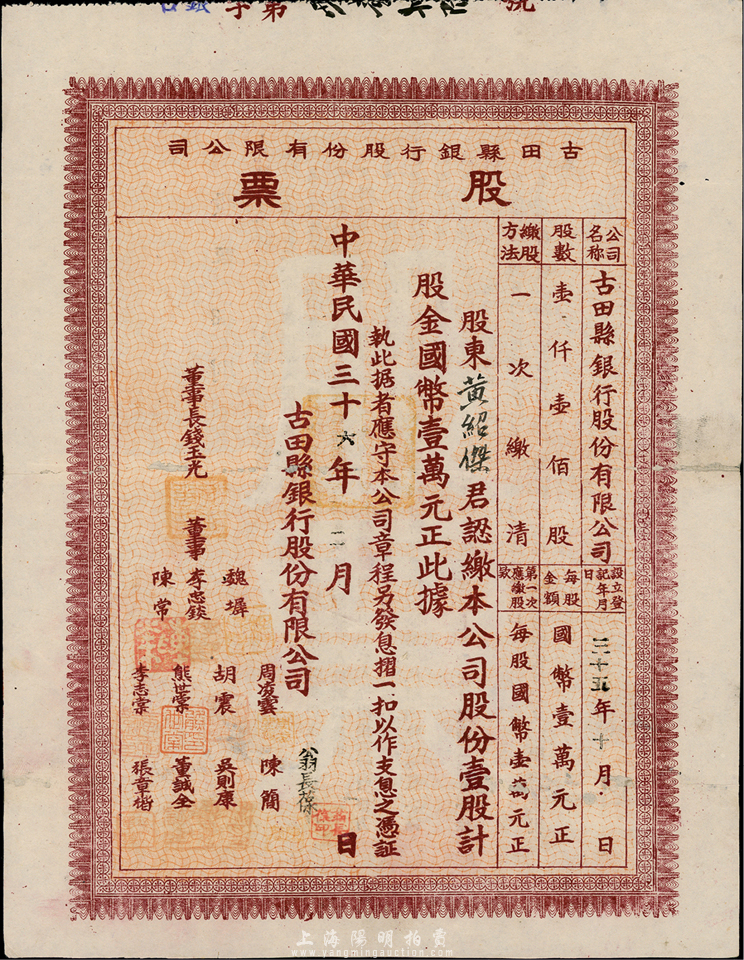 古田縣銀行股份有限公司
股票
公司名称
古田縣銀行股份有限公司
設立登記年月日
三十五年十月 日
股數
壹仟壹佰股
每股金額
國幣壹萬元正
繳股方法
一次繳清
第一次應繳股款
每股國幣壹萬元正
股東黃紹傑君認繳本公司股份壹股計
股金國幣壹萬元正此據
執此据者應守本公司章程另發息摺一扣以作支息之憑証
中華民國三十六年二月 日
古田縣銀行股份有限公司
董事長錢玉光
董事
魏墀
李忠錟
陳常
周凌雲
胡震
熊世棠
李志棠
翁長葆
陳簡
吳則康
董誠全
張章楷
上海陽明拍賣
www.yangmingauction.com